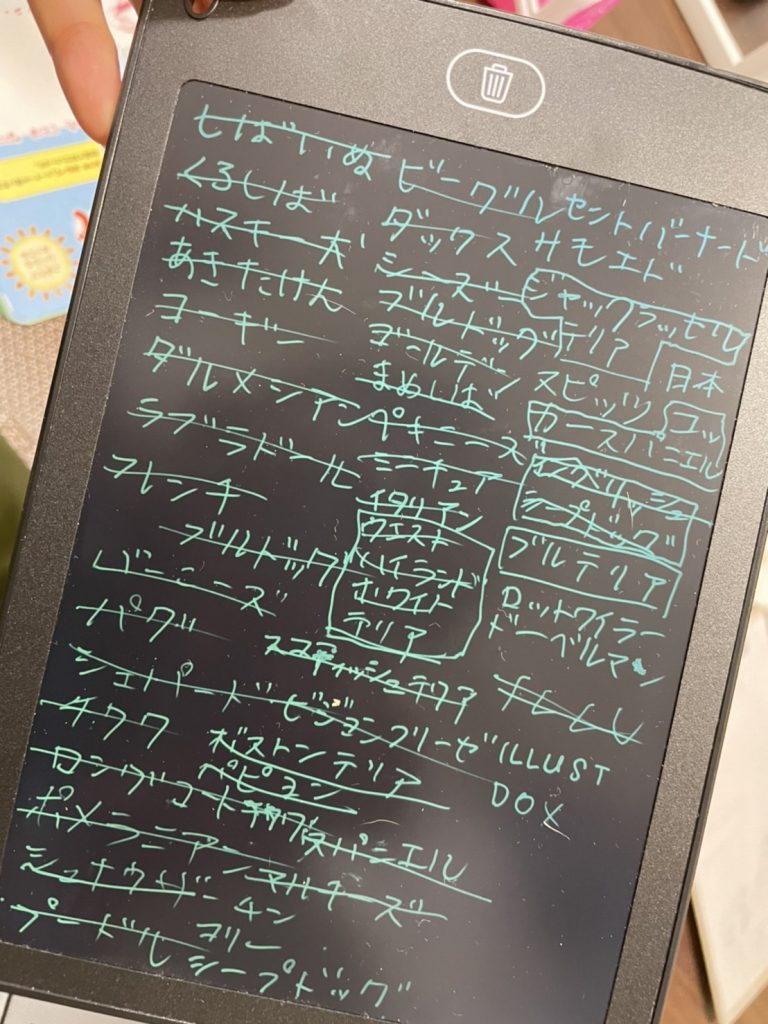 しばいぬ
くろしば
ハスキー犬
あきたけん
コーギー
ダルメシアン
ラブラドール
フレンチ
ブルドッグ
バーニーズ
パグ
シェパード
チワワ
ロングコートチワワ
ポメラニアン
シュナウザー
プードル
ビーグル
ダックス
シーズー
ブルドッグ
ゴールデン
まめしば
ペキニーズ
ミニチュア
イタリアン
ウエスト
ハイランド
ホワイト
テリア
テリア
ビションフリーゼ
ボストンテリア
パピヨン
スパニエル
マルチーズ
シープドッグ
セントバーナード
サモエド
ジャックラッセル
テリア
日本
スピッツ
コッ
カースパニエル
シープドッグ
ブルテリア
ロットワイラー
ドーベルマン
ILLUST
DOX